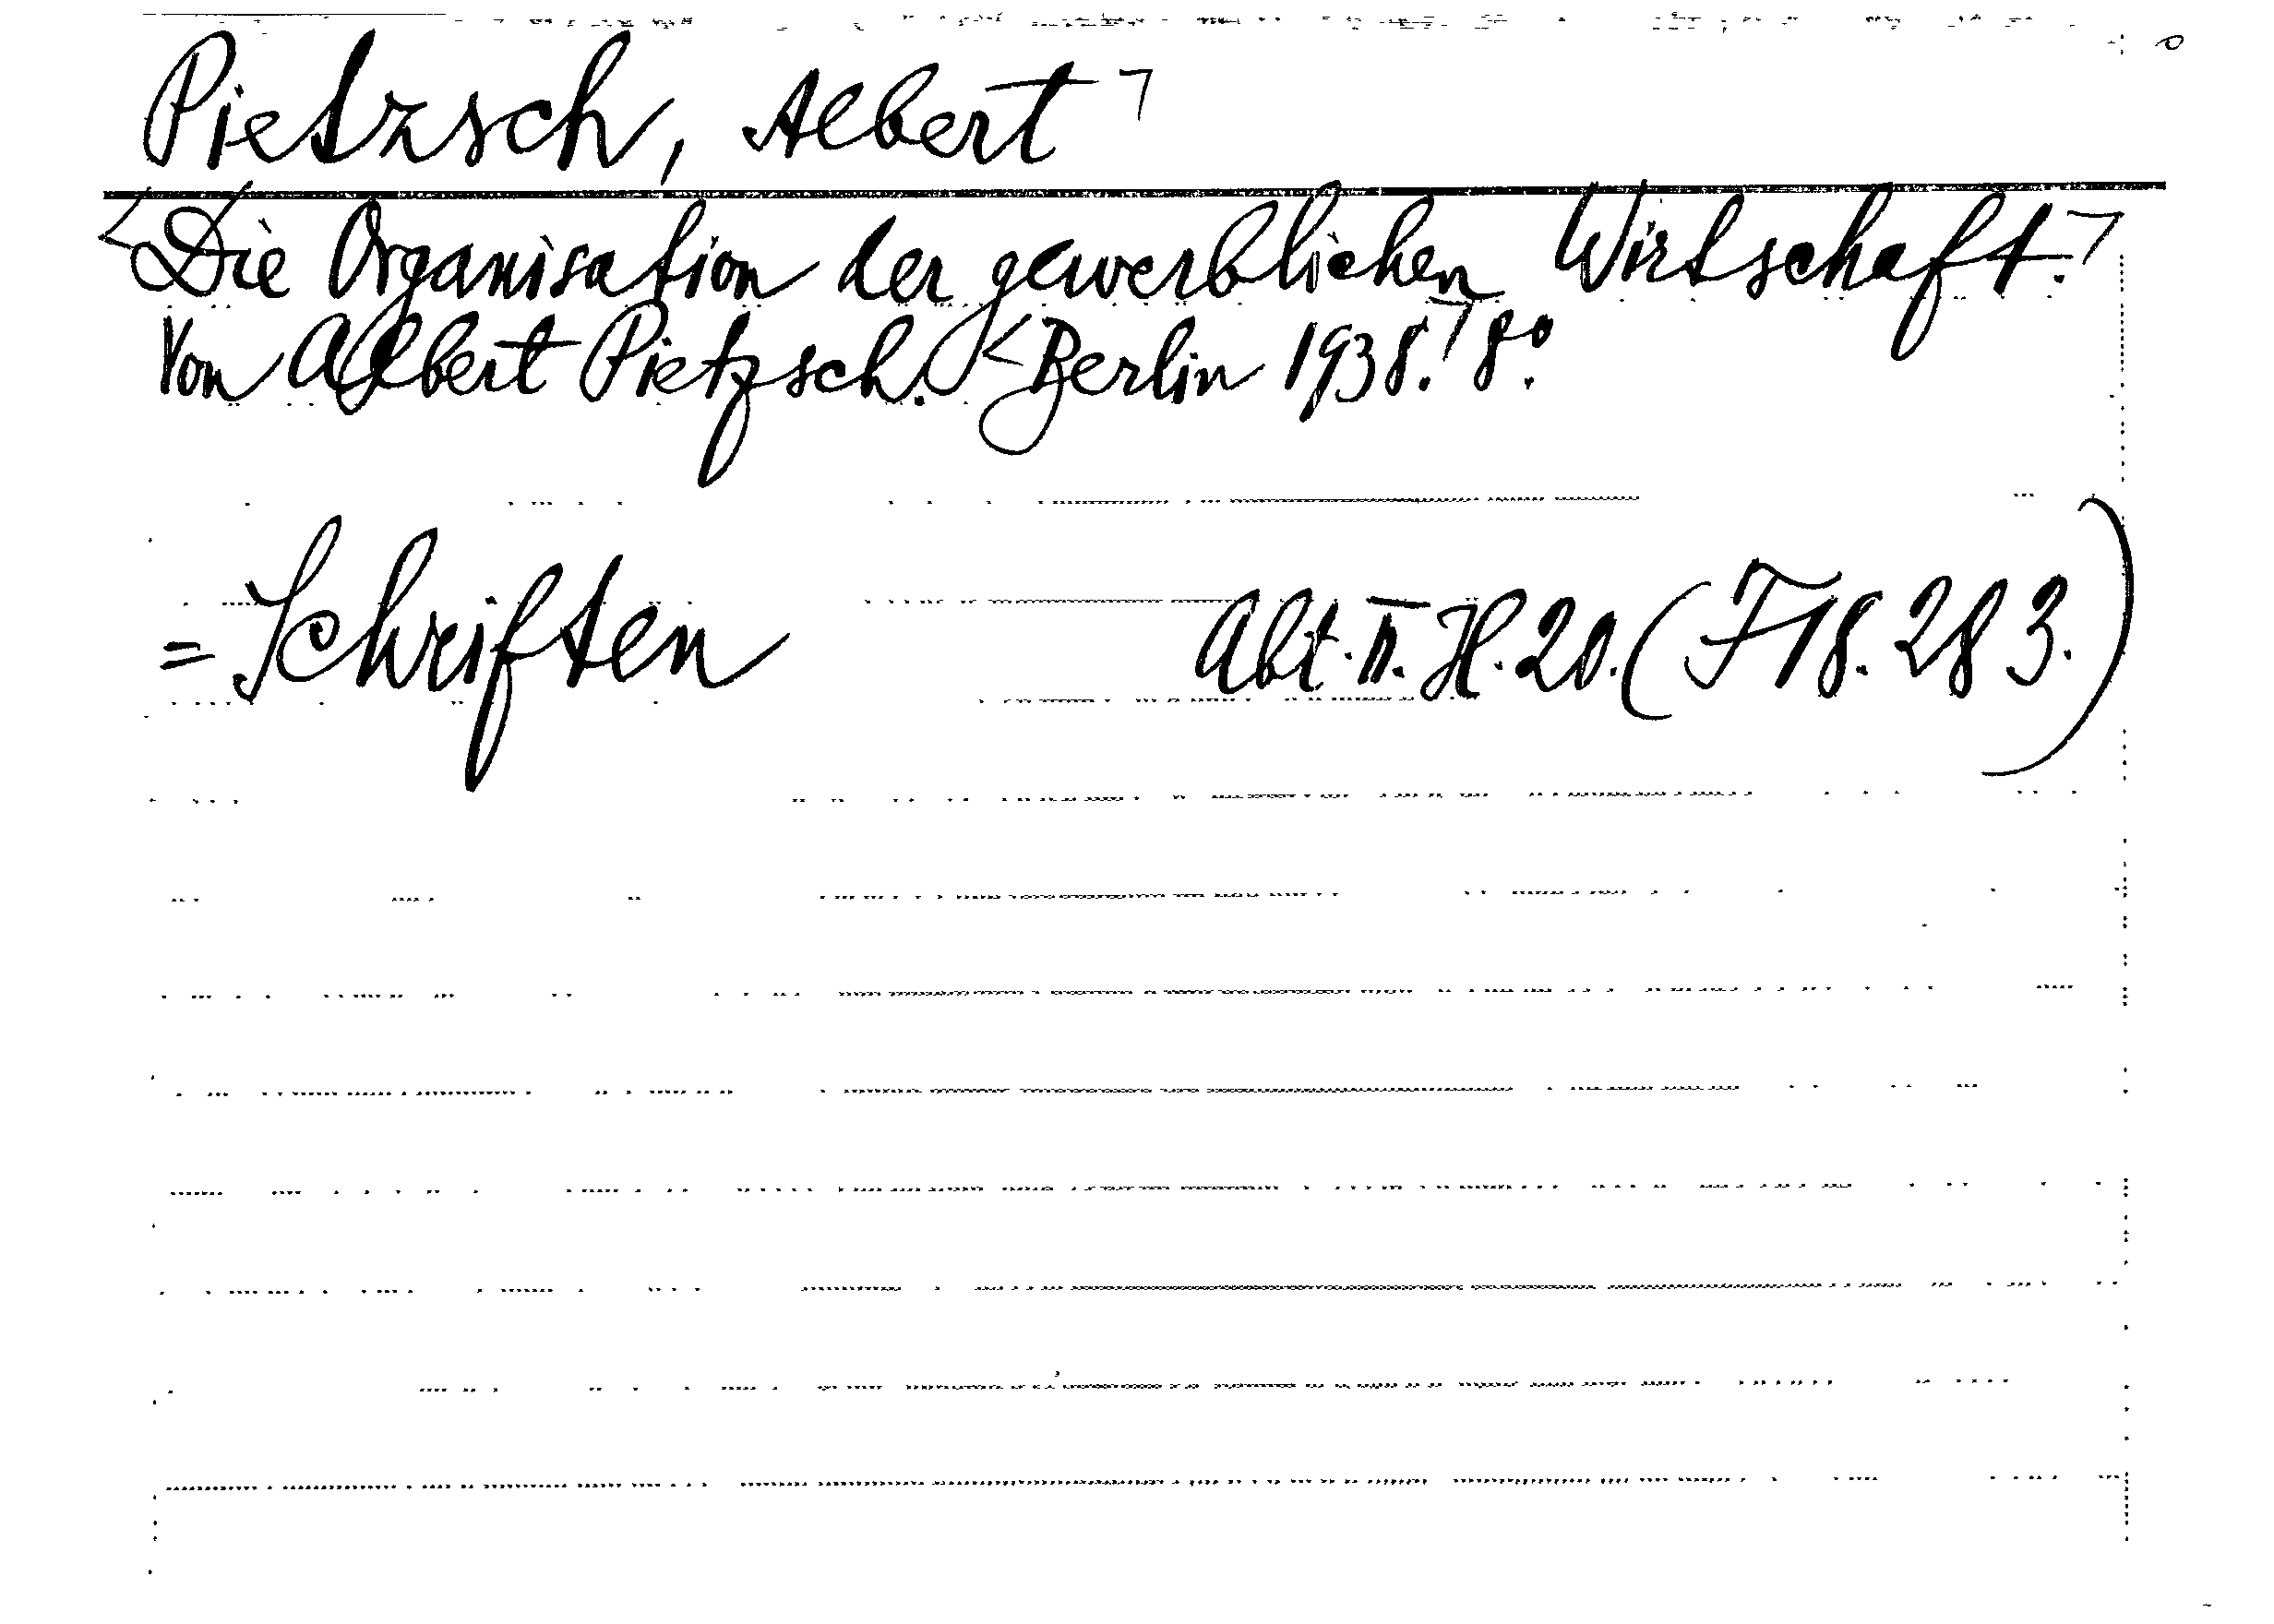 Pietzsch, Albert ⌝
<Die Organisation der gewerblichen Wirtschaft.⌝
Von Albert Pietzsch. <Berlin 1938.⌝ 8º.
= Schriften Abt. II. H. 20. (F 18. 283.)